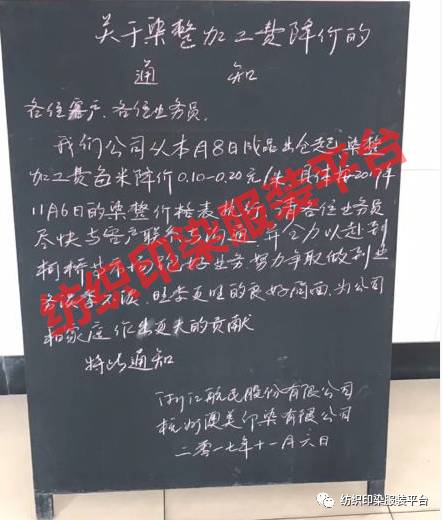 关于染整加工费降价的
通 知
各位客户、各位业务员
我们公司从本月8日成品出仓起，染整
加工费每米降价0.10-0.20元/米，具体按2017年
11月6日的染整价格表执行，请各位业务员
尽快与客户联系，并全力以赴到
柯桥其市场做好业务，努力争取做到业
务淡季不淡，旺季更旺的良好局面，为公司
和家庭作出更大的贡献
特此通知
浙江航民股份有限公司
杭州澳美印染有限公司
二零一七年十一月六日
纺织印染服装平台
纺织印染服装平台